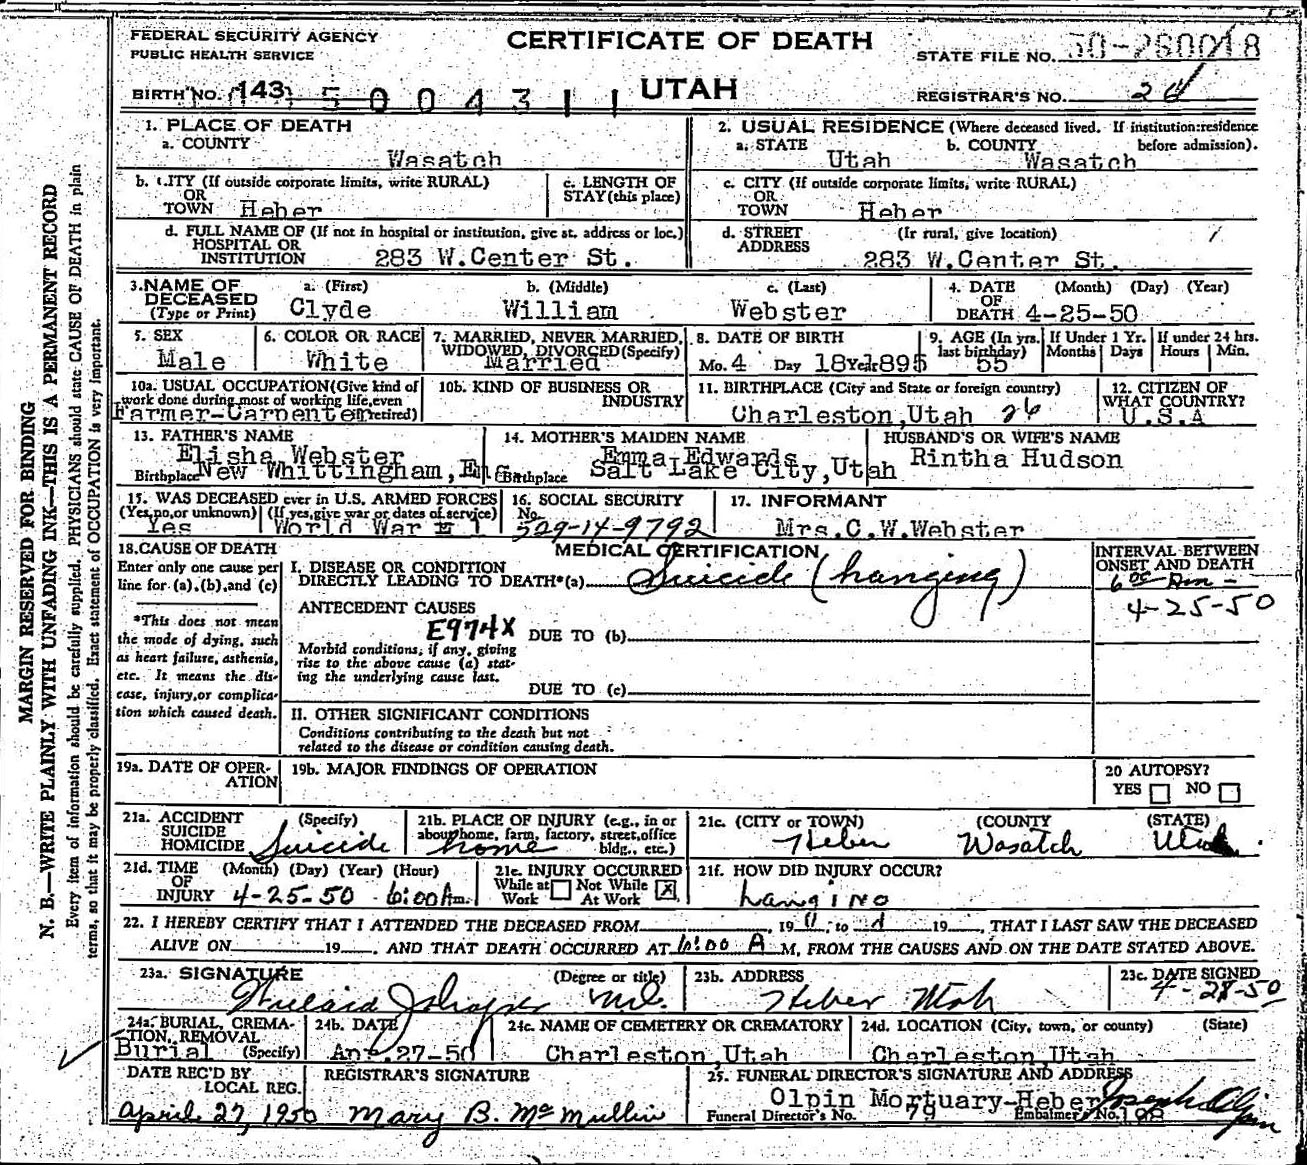 FEDERAL SECURITY AGENCY
PUBLIC HEALTH SERVICE
CERTIFICATE OF DEATH
UTAH
STATE FILE NO.
BIRTH NO. 143
REGISTRAR'S NO.
1. PLACE OF DEATH
a. COUNTY
Wasatch
2. USUAL RESIDENCE (Where deceased lived. If institution:residence before admission).
a. STATE Utah b. COUNTY Wasatch
b. CITY (If outside corporate limits, write RURAL)
OR
TOWN Heber
c. LENGTH OF
STAY (this place)
c. CITY (If outside corporate limits, write RURAL)
OR
TOWN Heber
d. FULL NAME OF (If not in hospital or institution, give st. address or loc.)
HOSPITAL OR
INSTITUTION 283 W.Center St.
d. STREET (If rural, give location)
ADDRESS 283 W.Center St.
3. NAME OF DECEASED
(Type or Print)
a. (First) b. (Middle) c. (Last)
Clyde William Webster
4. DATE OF DEATH (Month) (Day) (Year)
4-25-50
5. SEX
Male
6. COLOR OR RACE
White
7. MARRIED, NEVER MARRIED,
WIDOWED, DIVORCED (Specify)
Married
8. DATE OF BIRTH
Mo. 4 Day 18 Year 1895
9. AGE (In yrs. last birthday)
55
If Under 1 Yr.
Months Days
If under 24 hrs.
Hours Min.
10a. USUAL OCCUPATION (Give kind of
work done during most of working life, even
if retired)
Farmer-Carpenter
10b. KIND OF BUSINESS OR
INDUSTRY
11. BIRTHPLACE (City and State or foreign country)
Charleston,Utah 26
12. CITIZEN OF
WHAT COUNTRY?
U.S.A
13. FATHER'S NAME
Elisha Webster
Birthplace New Whittingham, Eng.
14. MOTHER'S MAIDEN NAME
Emma Edwards
Birthplace Salt Lake City,Utah
HUSBAND'S OR WIFE'S NAME
Rintha Hudson
15. WAS DECEASED ever in U.S. ARMED FORCES
(Yes,no,or unknown) (If yes,give war or dates of service)
Yes World War 1
16. SOCIAL SECURITY
No.
529-14-9792
17. INFORMANT
Mrs.C.W.Webster
18. CAUSE OF DEATH
Enter only one cause per
line for (a),(b),and (c)
*This does not mean
the mode of dying, such
as heart failure, asthenia,
etc. It means the dis-
ease, injury,or complica-
tion which caused death.
MEDICAL CERTIFICATION
I. DISEASE OR CONDITION
DIRECTLY LEADING TO DEATH*(a) Suicide (hanging)
INTERVAL BETWEEN
ONSET AND DEATH
6 00 Am -
4-25-50
ANTECEDENT CAUSES
E974X
DUE TO (b)
Morbid conditions, if any, giving
rise to the above cause (a) stat-
ing the underlying cause last.
DUE TO (c)
II. OTHER SIGNIFICANT CONDITIONS
Conditions contributing to the death but not
related to the disease or condition causing death.
19a. DATE OF OPER-
ATION
19b. MAJOR FINDINGS OF OPERATION
20 AUTOPSY?
YES NO
21a. ACCIDENT (Specify)
SUICIDE
HOMICIDE Suicide
21b. PLACE OF INJURY (e.g., in or
about home, farm, factory, street, office
bldg., etc.)
home
21c. (CITY or TOWN) (COUNTY (STATE)
Heber Wasatch Utah
21d. TIME OF INJURY (Month) (Day) (Year) (Hour)
4-25-50 6:00Am.
21e. INJURY OCCURRED
While at Work Not While At Work X
21f. HOW DID INJURY OCCUR?
hanging
22. I HEREBY CERTIFY THAT I ATTENDED THE DECEASED FROM 19 to 19 , THAT I LAST SAW THE DECEASED
ALIVE ON 19 , AND THAT DEATH OCCURRED AT 6:00 A M, FROM THE CAUSES AND ON THE DATE STATED ABOVE.
23a. SIGNATURE (Degree or title)
M.D.
23b. ADDRESS
Heber Utah
23c. DATE SIGNED
4-28-50
24a. BURIAL, CREMA-
TION, REMOVAL
Burial (Specify)
24b. DATE
Apr.27-50
24c. NAME OF CEMETERY OR CREMATORY
Charleston,Utah
24d. LOCATION (City, town, or county) (State)
Charleston,Utah
DATE REC'D BY
LOCAL REG.
April 27, 1950
REGISTRAR'S SIGNATURE
Mary B. McMullin
25. FUNERAL DIRECTOR'S SIGNATURE AND ADDRESS
Olpin Mortuary-Heber Joseph Olpin
Funeral Director's No. 79 Embalmer's No. 198
MARGIN RESERVED FOR BINDING
N. B.—WRITE PLAINLY WITH UNFADING INK—THIS IS A PERMANENT RECORD
Every item of information should be carefully supplied. PHYSICIANS should state CAUSE OF DEATH in plain
terms, so that it may be properly classified. Exact statement of OCCUPATION is very important.